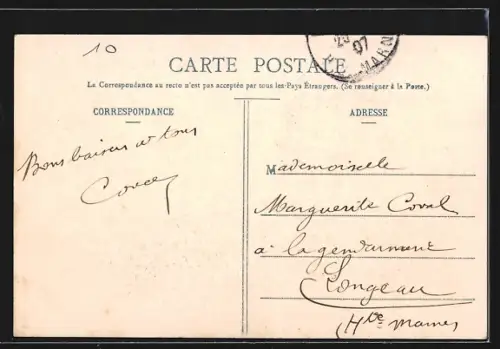 10
25
07
MARN
CARTE POSTALE
La Correspondance au recto n'est pas acceptée par tous les Pays Étrangers. (Se renseigner à la Poste.)
CORRESPONDANCE
Bons baisers a tous
ADRESSE
Mademoiselle
Marguerite Coval
à la gendarmerie
Longeau
(Hte Marne)